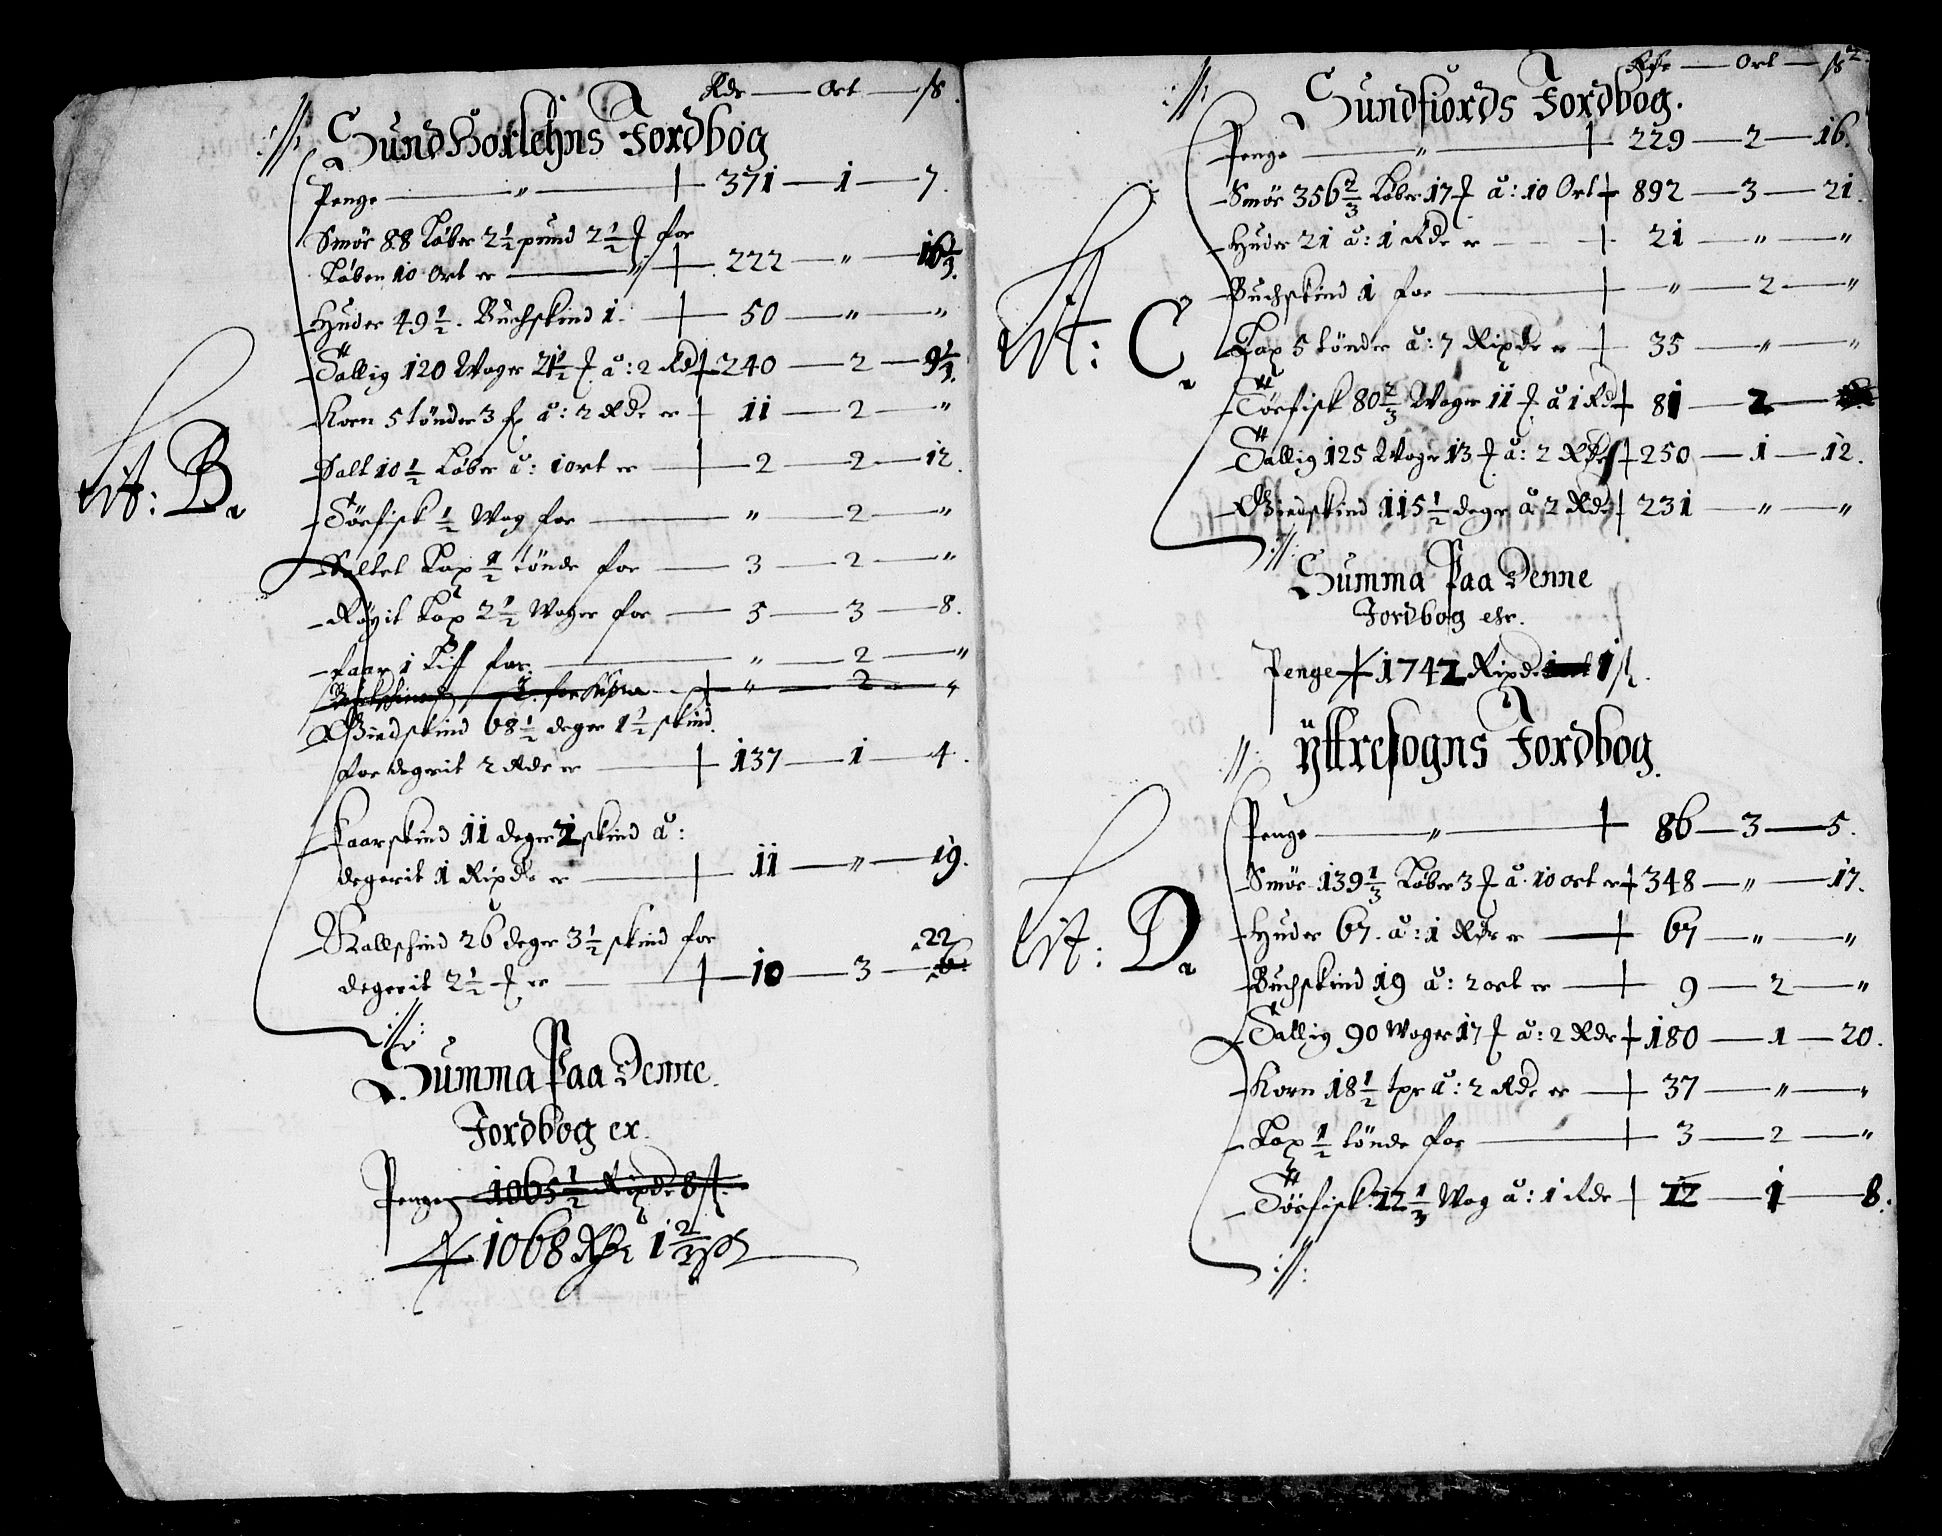 Rdr — Ort — ß.
SundHorlehns Jordbog
Penge — " — 371 — 1 — 7.
Smör 88 Løber 2 1/2 pund 2 1/2 ℔ for
Løben 10 Ort er — " — 222 — " — 16 1/3.
Huder 49 1/2. Buchskind 1. — 50 — " — "
Tallig 120 Woger 21 1/2 ℔ å: 2 Rdr 240 — 2 — 9 1/3.
Korn 5 tönder 3 å: 2 Rdr er 11 — 2 — "
Salt 10 1/2 Løber å: 1 ort er — 2 — 2 — 12.
Törfisk 1/2 Wog for — " — 2 — "
Saltet Lax 1/2 tönde for — 3 — 2 — "
Røgit Lax 2 1/2 Woger for — 5 — 3 — 8.
faar 1 for — " — 2 — "
" — 2 — "
Giedskind 68 1/2 deger 1 1/2 skind
for degrit 2 Rdr er — 137 — 1 — 4.
Lit: B.
Faarskind 11 deger 2 skind å:
degerit 1 Rixdr er — 11 — " — 19.
Kallschind 26 deger 3 1/2 skind for
22
degerit 2 1/2 ℔ er — 10 — 3 — 6.
Summa Paa Denne
Jordbog er.
Penge 1065 1/2 Rixdr 8 ß.
1068 Rdr 1 2/3 ß
Rdr — Ort — ß 2.
Sundfiords Jordbog.
Penge — " — 229 — 2 — 16.
Smör 356 2/3 Løber 17 ℔ å: 10 Ort 892 — 3 — 21.
Huder 21 å: 1 Rdr er — 21 — " — "
Buchskind 1 for — " — 2 — "
Lax 5 tönder å: 7 Rixdr er — 35 — " — "
Lit: C.
Törfisk 80 2/3 Woger 11 ℔ å 1 Rdr 81 — 2 —
Tallig 125 Woger 13 ℔ å: 2 Rdr 250 — 1 — 12.
Giedskind 115 1/2 deger å 2 Rdr 231 — " — "
Summa Paa Denne
Jordbog ehr.
Penge 1742 Rixdr 1 ß.
ÿttresogns Jordbog.
Penge — " — 86 — 3 — 5.
Smör 139 1/3 Løber 3 ℔ å. 10 ort er 348 — " — 17.
Huder 67. å: 1 Rdr er — 67 — " — "
Lit: D.
Buchskind 19 å: 2 ort er — 9 — 2 — "
Tallig 90 Woger 17 ℔ å: 2 Rdr 180 — 1 — 20.
Korn 18 1/2 tpr å: 2 Rdr er — 37 — " — "
Lax 1/2 tönde for — 3 — 2 — "
Törfisk 12 1/3 Wog å: 1 Rdr 12 — 1 — 8.